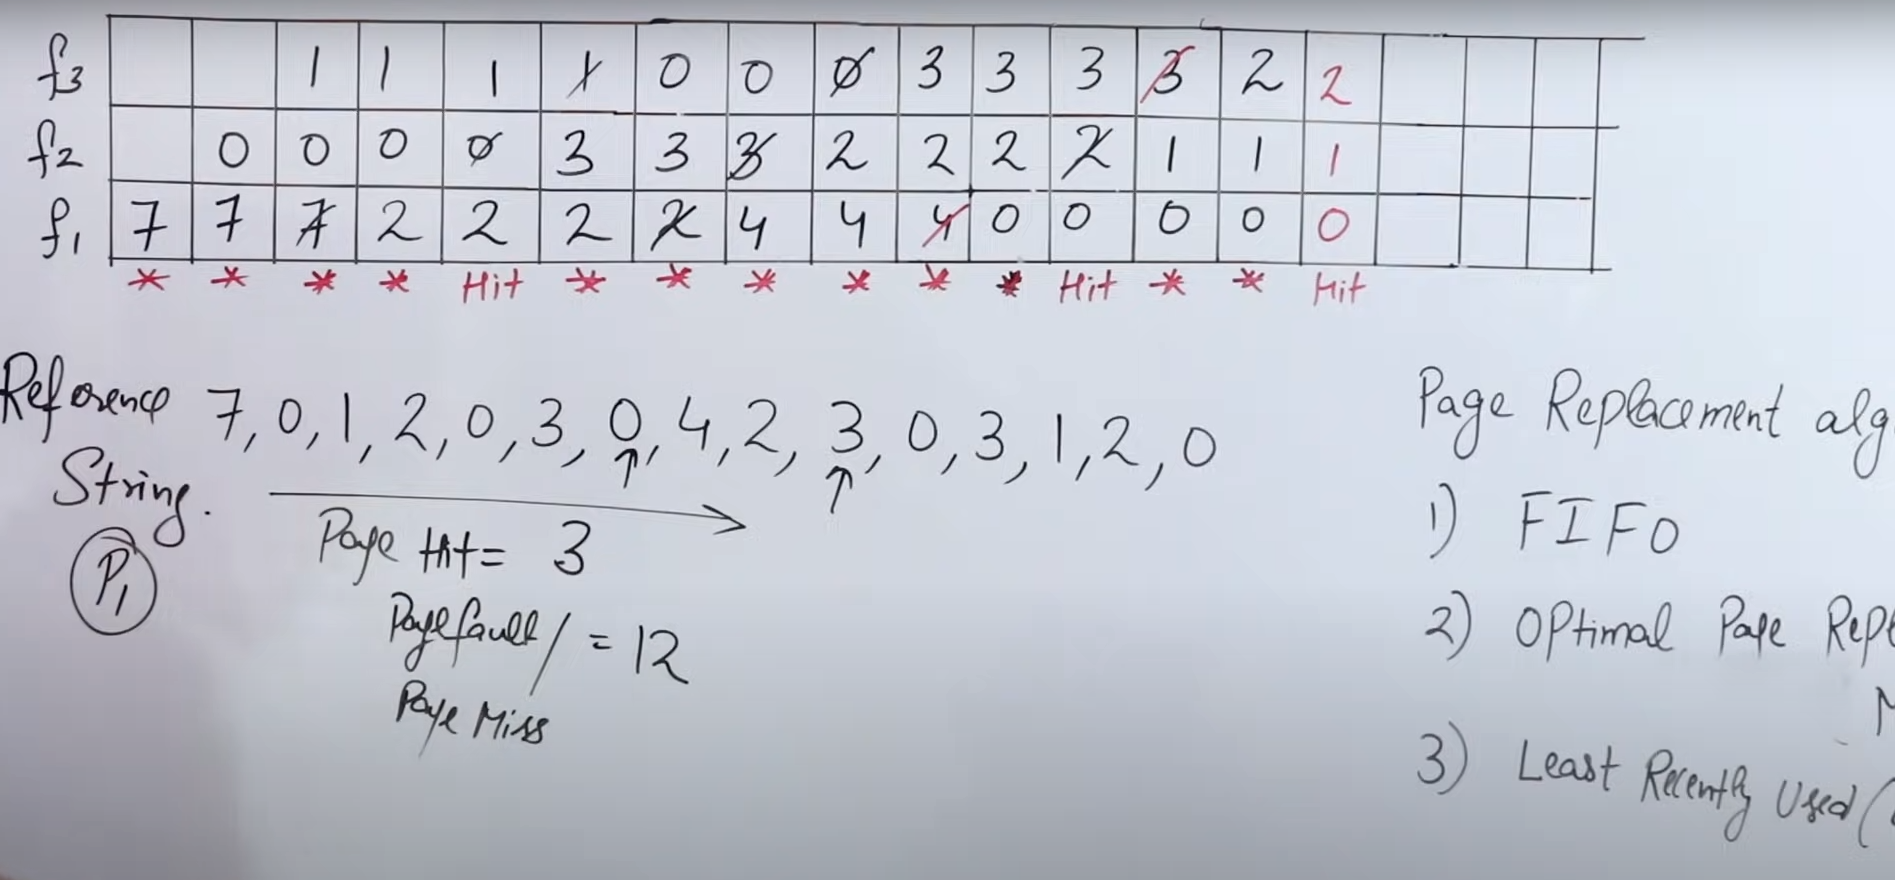 f3 1 1 1 1 0 0 0 3 3 3 3 2 2
f2 0 0 0 0 3 3 3 2 2 2 2 1 1 1
f1 7 7 7 2 2 2 2 4 4 4 0 0 0 0 0
* * * * Hit * * * * * * Hit * * Hit
Reference 7, 0, 1, 2, 0, 3, 0, 4, 2, 3, 0, 3, 1, 2, 0
String.
P1
Page Hit = 3
Page fault / = 12
Page Miss
Page Replacement alg
1) FIFO
2) OPtimal Page Rep
3) Least Recently Used (